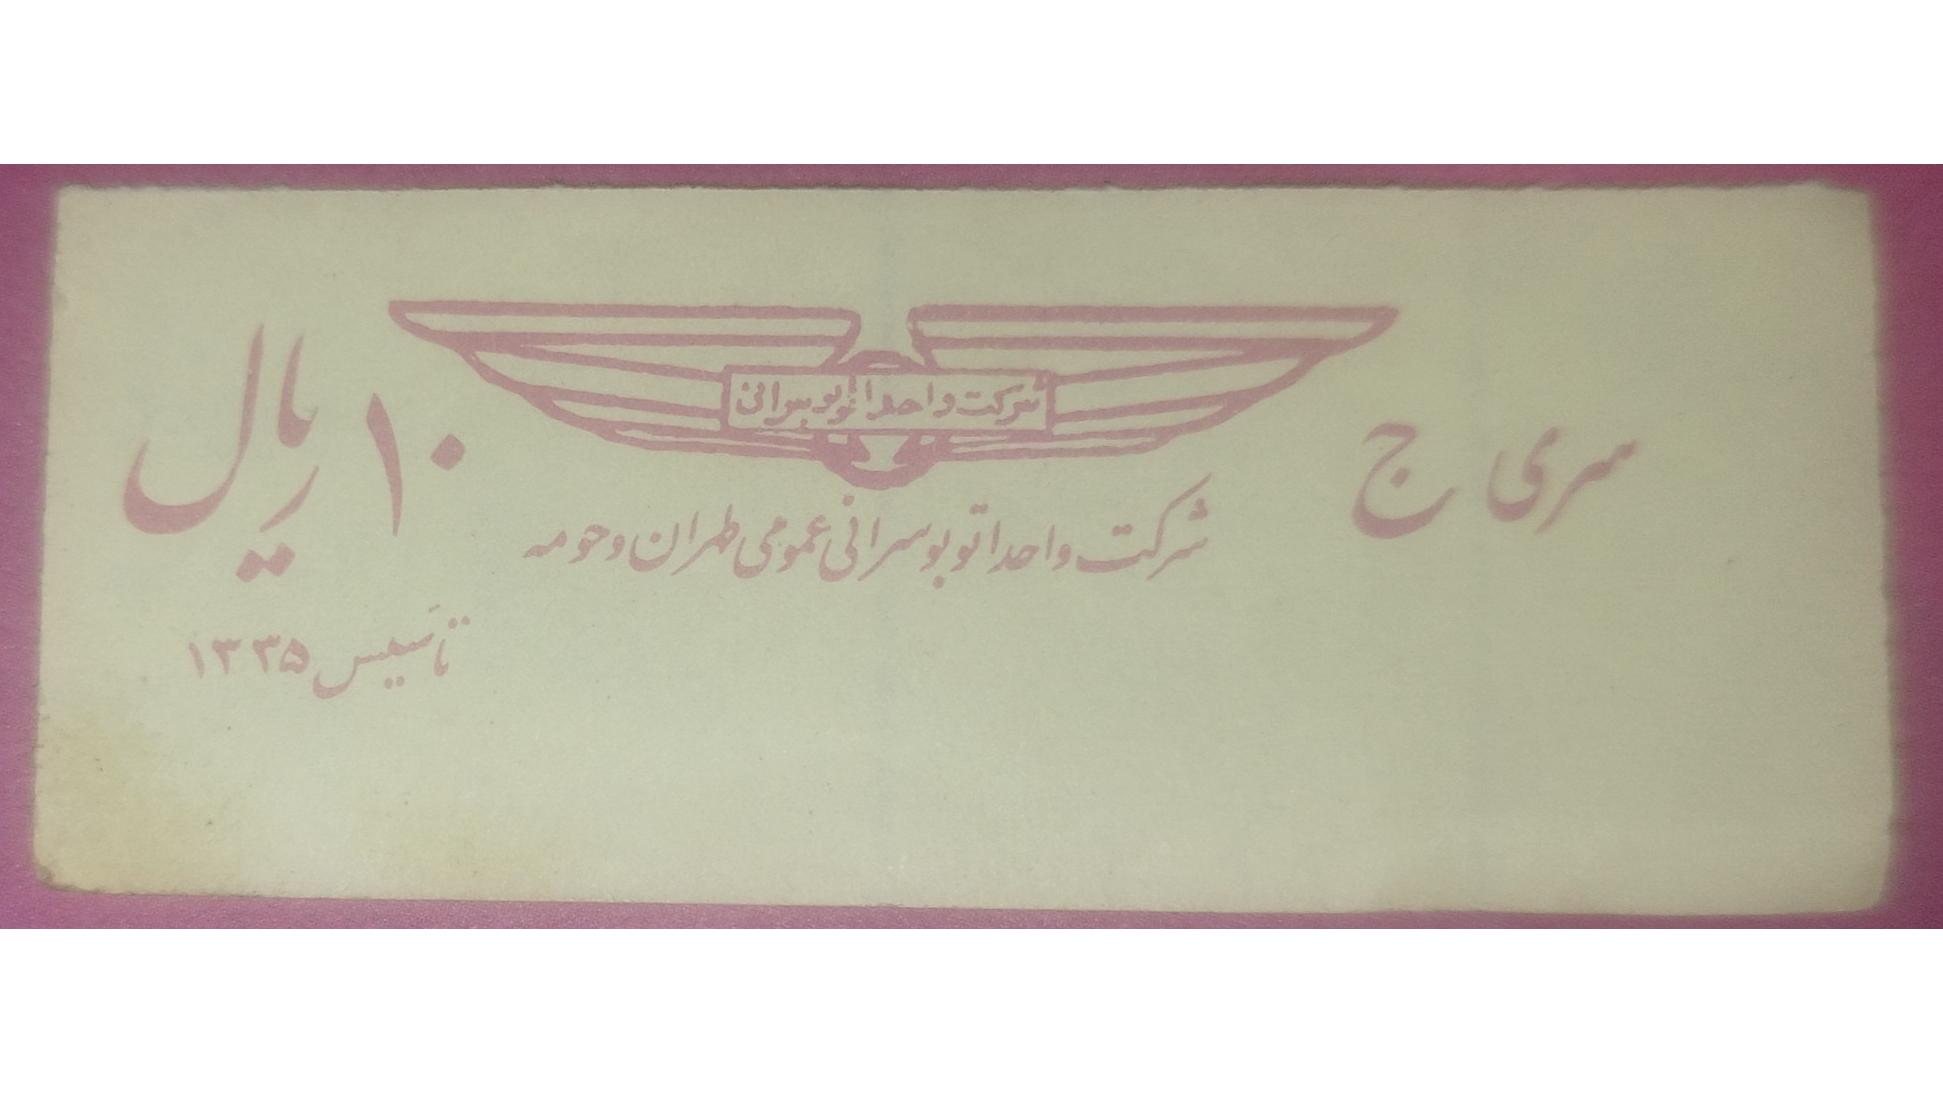 شرکت واحد اتوبوسرانی
سری ج
۱۰ ریال
شرکت واحد اتوبوسرانی عمومی طهران و حومه
تأسیس ۱۳۳۵